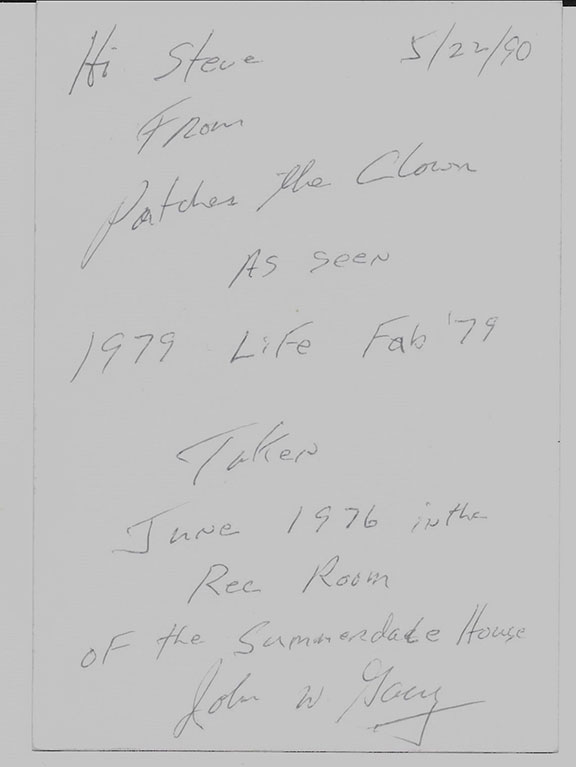 Hi Steve 5/22/90
From
Patches the Clown
As seen
1979 Life Fab '79
Taken
June 1976 in the
Rec Room
of the Summerdale House
John W. Gacy